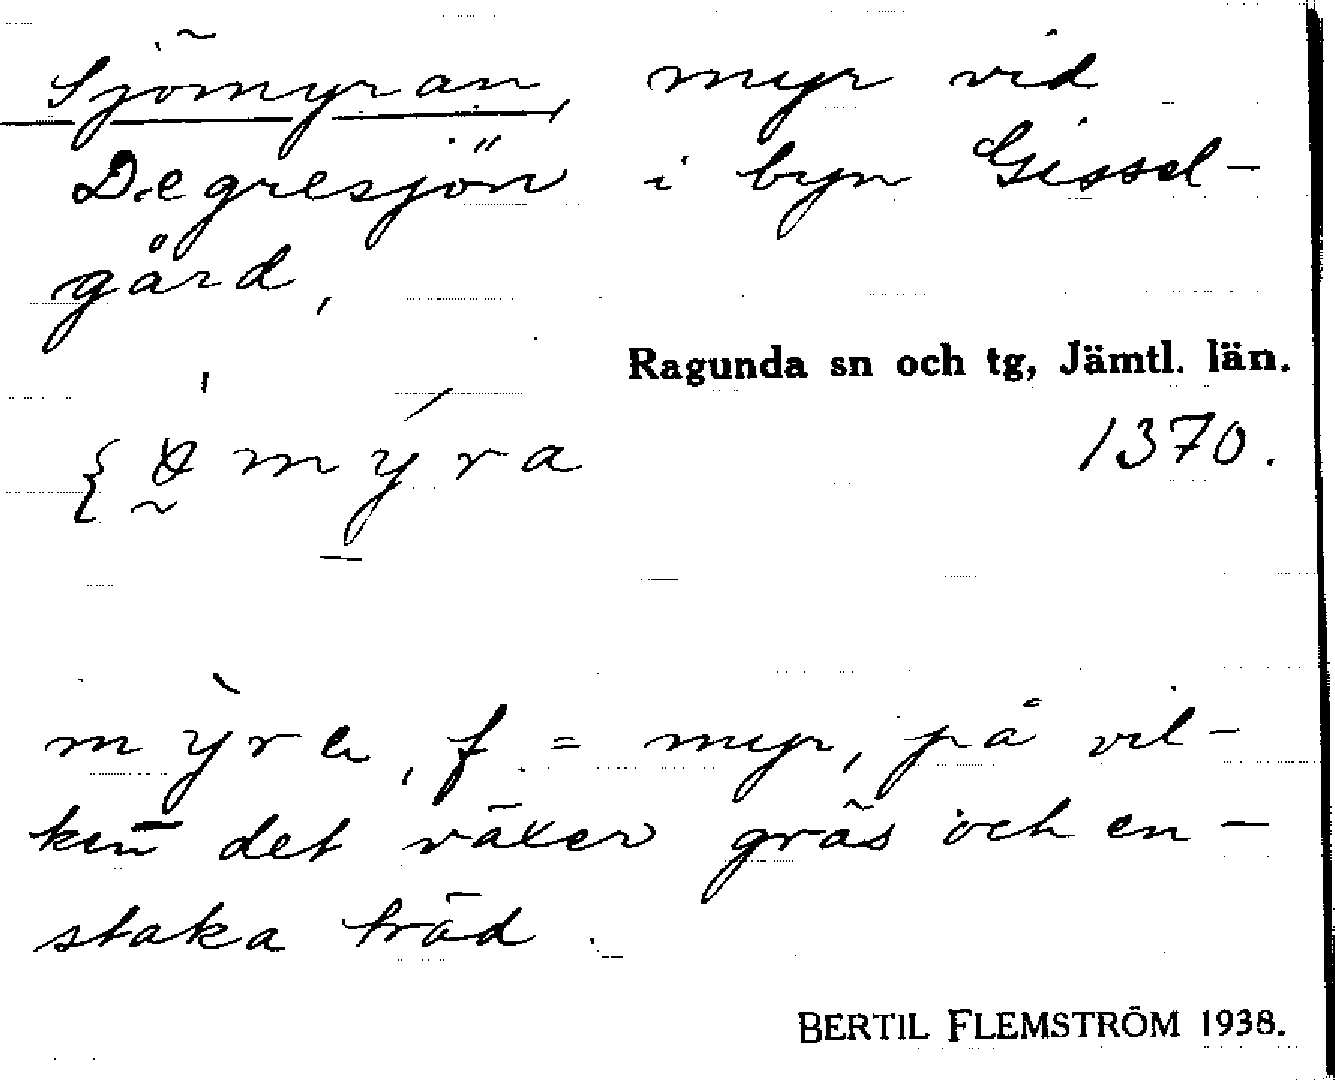 Sjömyran, myr vid
Degresjön i byn Gissel-
gård,
Ragunda sn och tg, Jämtl. län.
1370.
mỳra, f = myr, på vil-
ken det växer gräs och en-
staka träd.
BERTIL FLEMSTRÖM 1938.